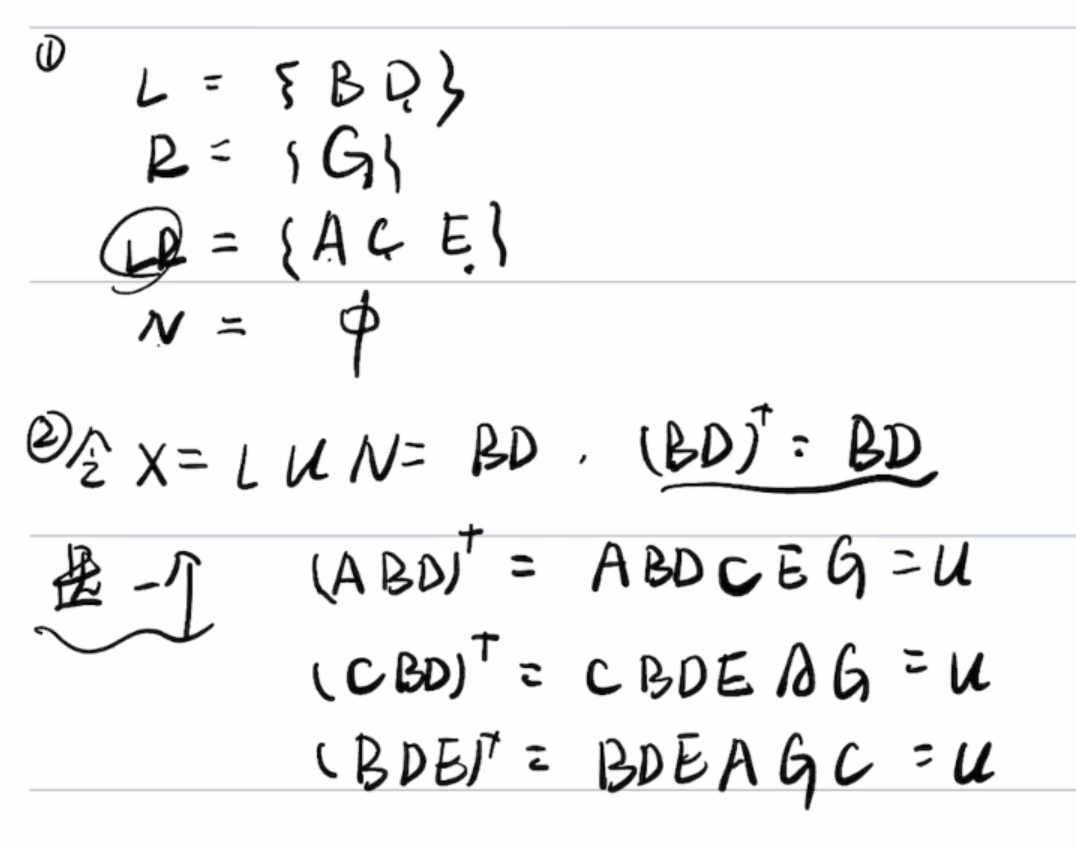 ①
L = {BD}
R = {G}
LR = {ACE}
N = φ
②令 X = L U N = BD . (BD)⁺ = BD
一个 (ABD)⁺ = ABDCEG = U
(CBD)⁺ = CBDEAG = U
(BDE)⁺ = BDEAGC = U